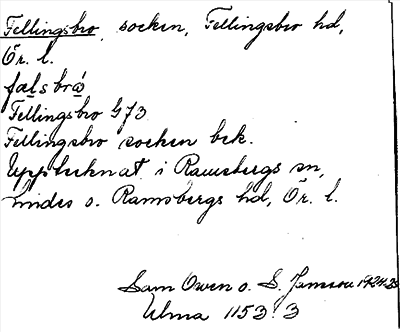 Fellingsbro, socken, Fellingsbro hd,
Ör. l.
fælsbró
Fellingsbro G 73
Fellingsbro socken bek.
Upptecknat i Ramsbergs sn,
Lindes o. Ramsbergs hd, Ör. l.
Sam Owen o. S. Jansson 1924.
Ulma 1153:3